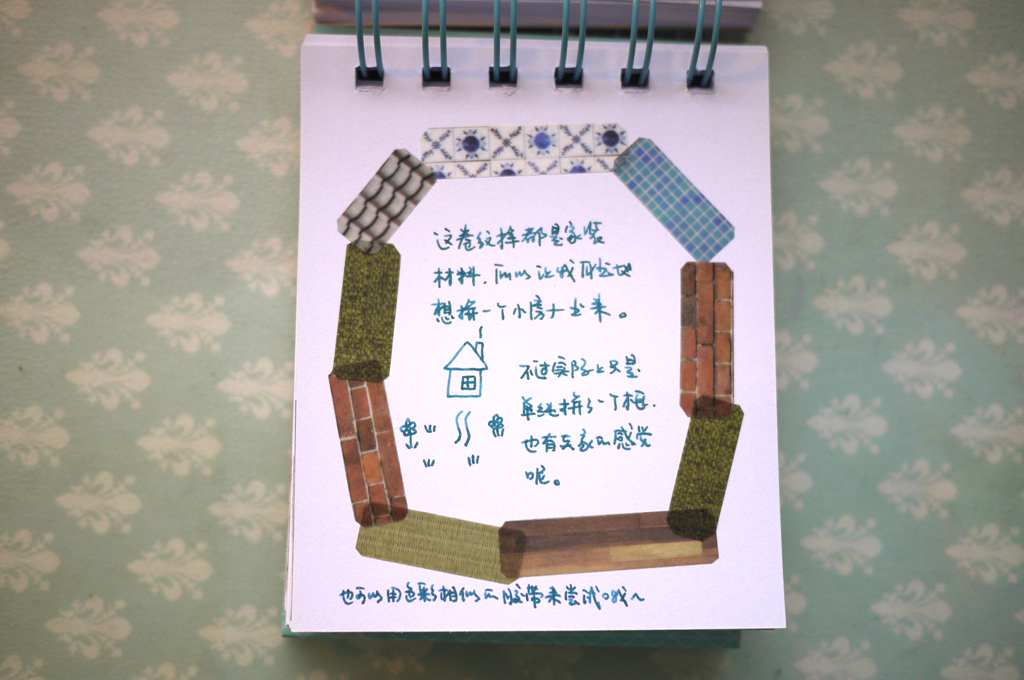 这卷纹样都是家装
材料，所以让我有些
想拼一个小房子出来。
不过实际上只是
单纯拼了一个框，
也有点家的感觉
呢。
也可以用色彩相似的胶带来尝试哦～